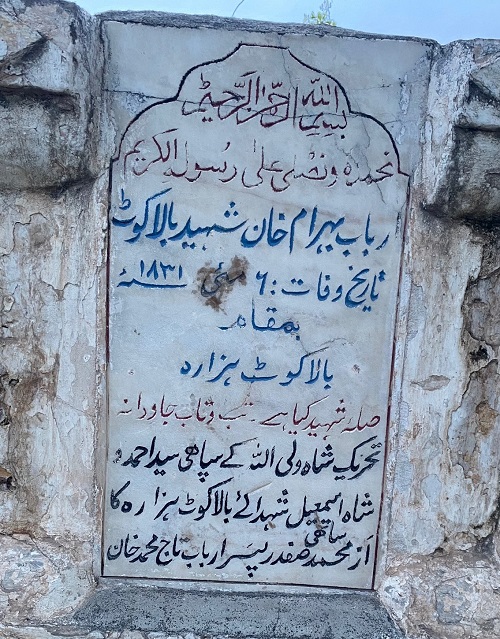 بسم اللہ الرحمن الرحیم
نحمدہ ونصلی علیٰ رسولہ الکریم
رباب بہرام خان شہید بالاکوٹ
تاریخ وفات : ۶ مئی ۱۸۳۱ ء
بمقام
بالاکوٹ ہزارہ
صلہ شہید کیا ہے تب وتاب جاودانہ
تحریک شاہ ولی اللہ کے سپاھی سید احمد و
شاہ اسمعیل شہدائے بالاکوٹ ہزارہ کا
ساتھی
از محمد صفدر پسر ارباب تاج محمد خان